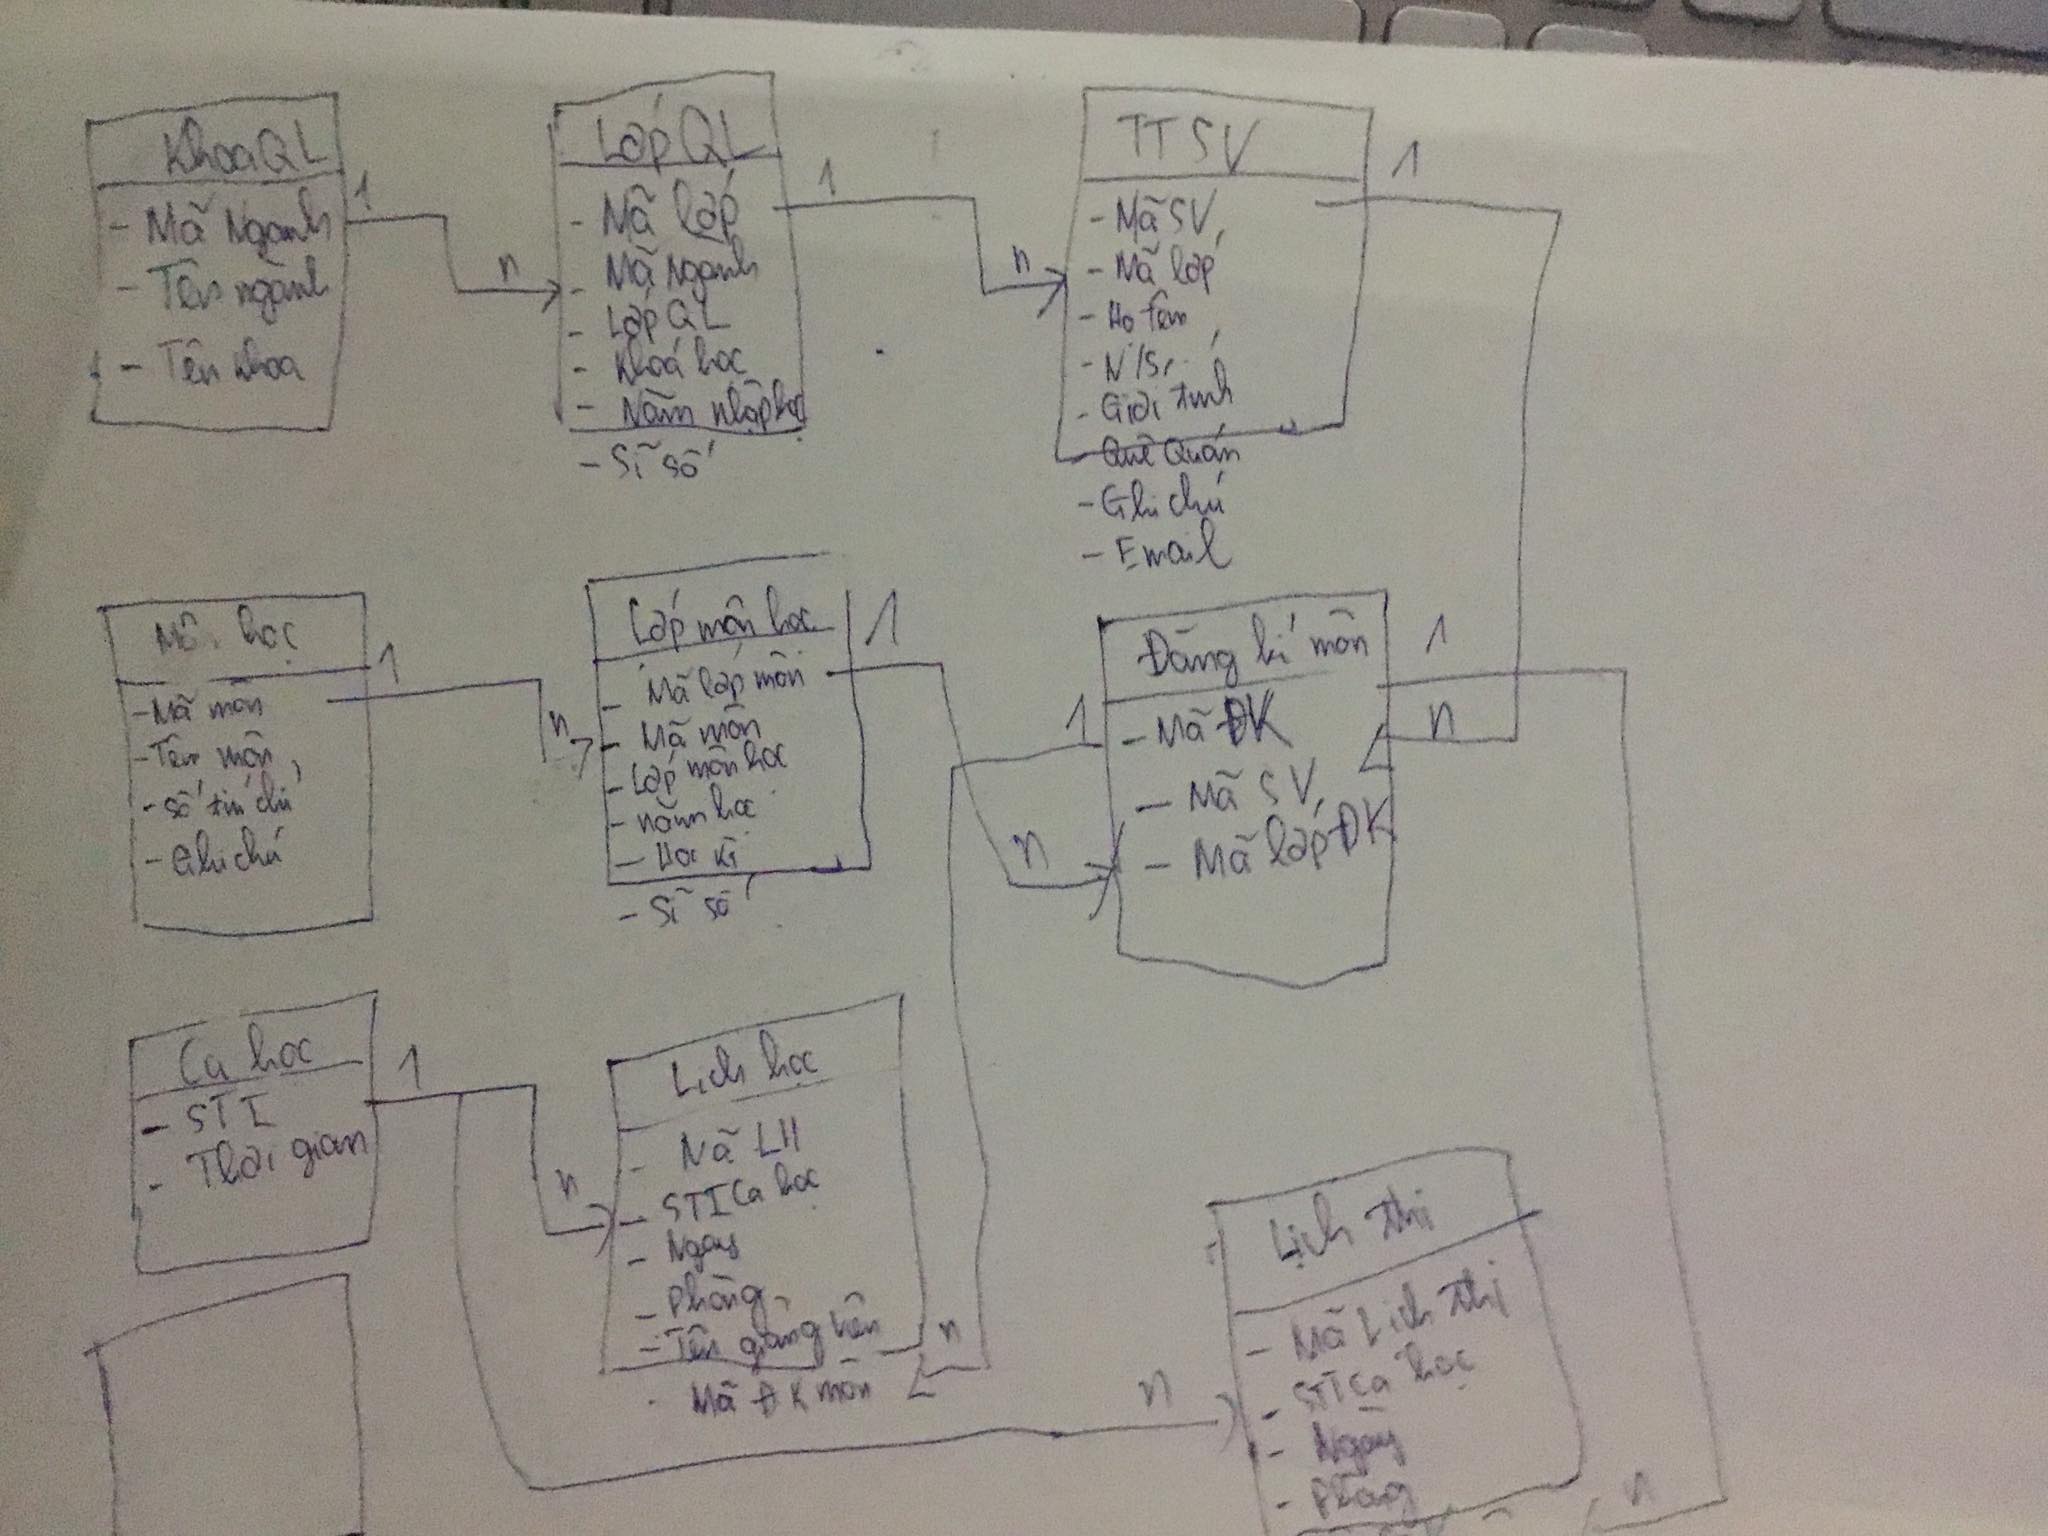 KhoaQL
- Mã Ngành
- Tên ngành
- Tên khoa
1
n
Lớp QL
- Mã lớp
- Mã ngành
- Lớp QL
- Khoá học
- Năm nhập học
- Sĩ số
1
n
TTSV
- Mã SV
- Mã lớp
- Họ tên
- N/S
- Giới tính
- Quê Quán
- Ghi chú
- Email
1
học
- Mã môn
- Tên môn
- Số tín chỉ
- Ghi chú
1
n
Lớp môn học
- Mã lớp môn
- Mã môn
- Lớp môn học
- năm học
- Học kì
- Sĩ số
1
n
Đăng kí môn
- Mã ĐK
- Mã SV
- Mã lớp ĐK
1
1
n
Ca học
- STT
- Thời gian
1
n
Lịch học
- Mã LH
- STT Ca học
- Ngày
- Phòng
- Tên giảng viên
- Mã ĐK môn
n
n
Lịch thi
- Mã Lịch thi
- STT Ca học
- Ngày
- Phòng
n